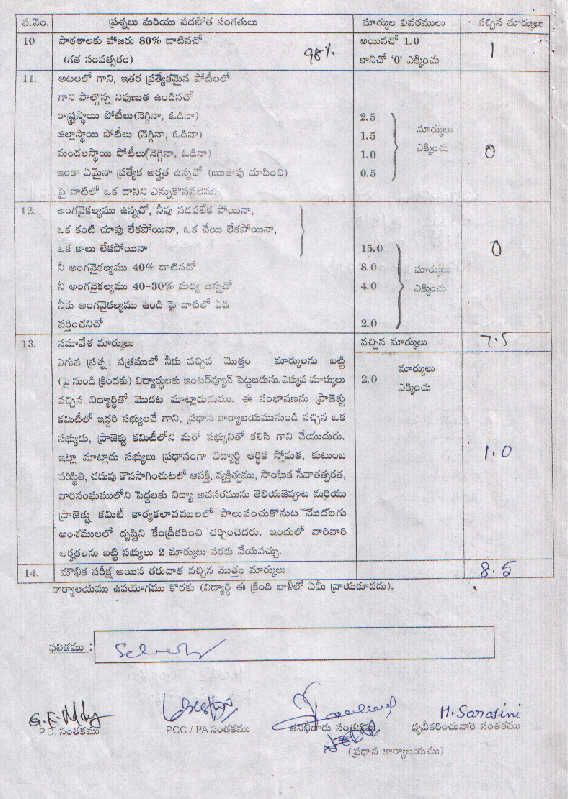 చ.నెం. ప్రశ్నలు మరియు వడబోత సంగతులు మార్కుల వివరములు వచ్చిన మార్కులు
10 పాఠశాలకు హాజరు 80% దాటినచో 98% అయినచో 1.0 1
(గత సంవత్సరం) కానిచో '0' ఎక్కించు
11. ఆటలలో గాని, ఇతర ప్రత్యేకమైన పోటీలలో
గాని పాల్గొన్న నిపుణత ఉండినచో
రాష్ట్రస్థాయి పోటీలు(నెగ్గినా, ఓడినా) 2.5
జిల్లాస్థాయి పోటీలు (నెగ్గినా, ఓడినా) 1.5 మార్కులు
మండలస్థాయి పోటీలు(నెగ్గినా, ఓడినా) 1.0 ఎక్కించు 0
ఇంకా ఏమైనా ప్రత్యేక అర్హత ఉన్నచో (ఋజువు చూపించి) 0.5
పై వాటిలో ఒక దానిని ఎన్నుకొనవలెను.
12. అంగవైకల్యము ఉన్నచో, నీవు నడవలేక పోయినా,
ఒక కంటి చూపు లేకపోయినా, ఒక చేయి లేకపోయినా,
ఒక కాలు లేకపోయినా 15.0 0
నీ అంగవైకల్యము 40% దాటినచో 8.0 మార్కులు
నీ అంగవైకల్యము 40-30% మధ్య ఉన్నచో 4.0 ఎక్కించు
నీకు అంగవైకల్యము ఉండి పై వాటిలో ఏది
వర్తించనిచో 2.0
13. సమావేశ మార్కులు వచ్చిన మార్కులు 7.5
ఏగువ ప్రశ్న పత్రములో నీకు వచ్చిన మొత్తం మార్కులను బట్టి మార్కులు
(పై నుండి క్రిందకు) విద్యార్థులకు ఇంటర్వ్యూకై పెట్టబడును. ఎక్కువ మార్కులు 2.0 ఎక్కించు
వచ్చిన విద్యార్థితో మొదట మాట్లాడుదుము. ఈ సంభాషణను ప్రాజెక్టు
కమిటీలో ఇద్దరి సభ్యులచే గాని, ప్రధాన కార్యాలయమునుండి వచ్చిన ఒక
సభ్యుడు, ప్రాజెక్టు కమిటీలోని మరో సభ్యునితో కలిసి గాని చేయుదురు.
ఇట్లా మాట్లాడు సభ్యులు ప్రధానంగా విద్యార్థి ఆర్థిక స్తోమత, కుటుంబ 1.0
పరిస్థితి, చదువు కొనసాగించుటలో ఆసక్తి, వ్యక్తిత్వము, సాంఘిక సేవాతత్పరత,
వారిసంఘములోని పెద్దలకు విద్యా అవసరమును తెలియజెప్పుట మరియు
ప్రాజెక్టు కమిటీ కార్యకలాపములలో పాలుపంచుకొనుట మొదలగు
అంశములలో దృష్టిని కేంద్రీకరించి చర్చించెదరు. ఇందులో వారివారి
అర్హతలను బట్టి సభ్యులు 2 మార్కులు వరకు వేయవచ్చు.
14. మౌఖిక పరీక్ష అయిన తరువాత వచ్చిన మొత్తం మార్కులు 8.5
కార్యాలయము ఉపయోగము కొరకు (విద్యార్థి ఈ క్రింది బాక్స్‌లో ఏమీ వ్రాయకూడదు).
ఫలితము :
P.C సంతకము PCC / PA సంతకము సంతకము ధృవీకరించువారి సంతకము
H. Sarojini
(ప్రధాన కార్యాలయము)